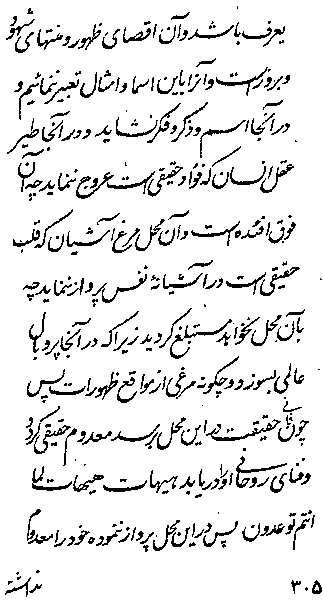 یعرف باشد و آن اقصای ظهور و منتهای شهود
و بروز است و آنرا باین اسما و امثال تعبیر نمائیم و
در آنجا اسم و ذکر و فکر نشاید و در آنجا طیر
عقل انسان که فؤاد حقیقی است عروج ننماید چه آن
فوق افئده است و آن محل مرغ آشیان که قلب
حقیقی است در آشیانه نفس پرواز ننماید چه
بآن محل نخواهد مستبلغ گردید زیرا که در آنجا پر و بال
عالی بسوزد و چگونه مرغی از مواقع ظهورات پس
چون حقیقت در این محل برسد معدوم حقیقی گردد
و فنای روحانی او را دریابد هیهات هیهات لما
انتم توعدون پس در این محل پرواز ننموده خود را معدوم
۳۰۵ ندانسته